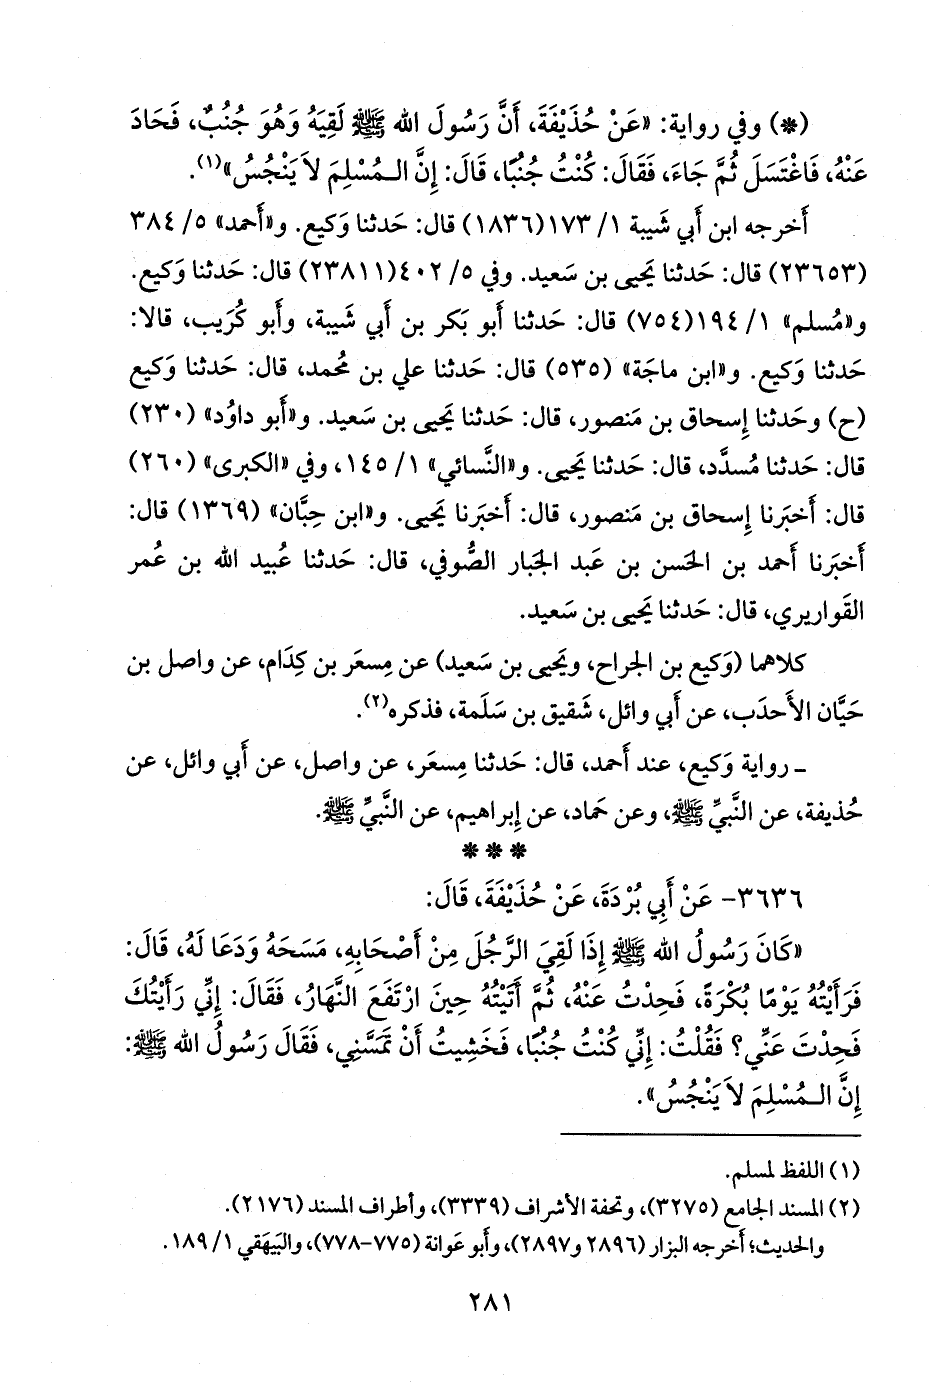 (*) وفي رواية: «عَنْ حُذَيْفَةَ، أَنَّ رَسُولَ الله ﷺ لَقِيَهُ وَهُوَ جُنُبٌ، فَحَادَ
عَنْهُ، فَاغْتَسَلَ ثُمَّ جَاءَ، فَقَالَ: كُنْتُ جُنُبًا، قَالَ: إِنَّ الـمُسْلِمَ لاَ يَنْجُسُ»(١).
أَخرجه ابن أَبي شَيبة ١/ ١٧٣(١٨٣٦) قال: حَدثنا وَكيع. و«أَحمد» ٥/ ٣٨٤
(٢٣٦٥٣) قال: حَدثنا يَحيى بن سَعيد. وفي ٥/ ٤٠٢(٢٣٨١١) قال: حَدثنا وَكيع.
و«مُسلم» ١/ ١٩٤(٧٥٤) قال: حَدثنا أَبو بَكر بن أَبي شَيبة، وأَبو كُرَيب، قالا:
حَدثنا وَكيع. و«ابن ماجَة» (٥٣٥) قال: حَدثنا علي بن مُحمد، قال: حَدثنا وَكيع
(ح) وحَدثنا إِسحاق بن مَنصور، قال: حَدثنا يَحيى بن سَعيد. و«أَبو داوُد» (٢٣٠)
قال: حَدثنا مُسدَّد، قال: حَدثنا يَحيى. و«النَّسائي» ١/ ١٤٥، وفي «الكبرى» (٢٦٠)
قال: أَخبَرنا إِسحاق بن مَنصور، قال: أَخبَرنا يَحيى. و«ابن حِبَّان» (١٣٦٩) قال:
أَخبَرنا أَحمد بن الحَسن بن عَبد الجَبار الصُّوفي، قال: حَدثنا عُبيد الله بن عُمر
القَواريري، قال: حَدثنا يَحيى بن سَعيد.
كلاهما (وَكيع بن الجراح، ويَحيى بن سَعيد) عن مِسعَر بن كِدَام، عن واصل بن
حَيَّان الأَحدَب، عن أَبي وائل، شَقيق بن سَلَمة، فذكره(٢).
ـ رواية وَكيع، عند أَحمد، قال: حَدثنا مِسعَر، عن واصل، عن أَبي وائل، عن
حُذيفة، عن النَّبيِّ ﷺ، وعن حَماد، عن إِبراهيم، عن النَّبيِّ ﷺ.
* * *
٣٦٣٦- عَنْ أَبِي بُرْدَةَ، عَنْ حُذَيْفَةَ، قَالَ:
«كَانَ رَسُولُ الله ﷺ إِذَا لَقِيَ الرَّجُلَ مِنْ أَصْحَابِهِ، مَسَحَهُ وَدَعَا لَهُ، قَالَ:
فَرَأَيْتُهُ يَوْمًا بُكْرَةً، فَحِدْتُ عَنْهُ، ثُمَّ أَتَيْتُهُ حِينَ ارْتَفَعَ النَّهَارُ، فَقَالَ: إِنِّي رَأَيْتُكَ
فَحِدْتَ عَنِّي؟ فَقُلْتُ: إِنِّي كُنْتُ جُنُبًا، فَخَشِيتُ أَنْ تَمَسَّنِي، فَقَالَ رَسُولُ الله ﷺ:
إِنَّ الـمُسْلِمَ لاَ يَنْجُسُ».
(١) اللفظ لمسلم.
(٢) المسند الجامع (٣٢٧٥)، وتحفة الأشراف (٣٣٣٩)، وأطراف المسند (٢١٧٦).
والحديث؛ أَخرجه البزار (٢٨٩٦ و٢٨٩٧)، وأَبو عَوانة (٧٧٥-٧٧٨)، والبَيهَقي ١/ ١٨٩.
٢٨١